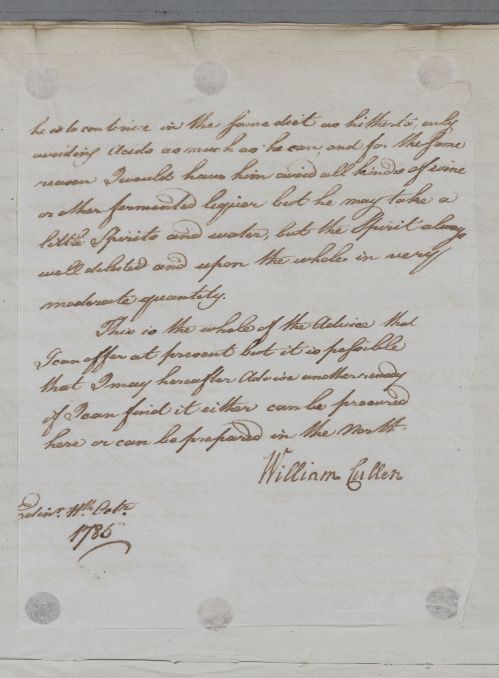 he is to continue in the same diet as hitherto, only
avoiding Acids as much as he can, and for the same
reason I would have him avoid all kinds of wine
or other fermented liquor but he may take a
little Spirits and water, but the Spirit always
well diluted and upon the whole in very
moderate quantity.
This is the whole of the Advice that
I can offer at present but it is possible
that I may hereafter Advise another remedy
if I can find it either can be procured
here or can be prepared in the North
William Cullen
Edinr. 11th Octr.
1785